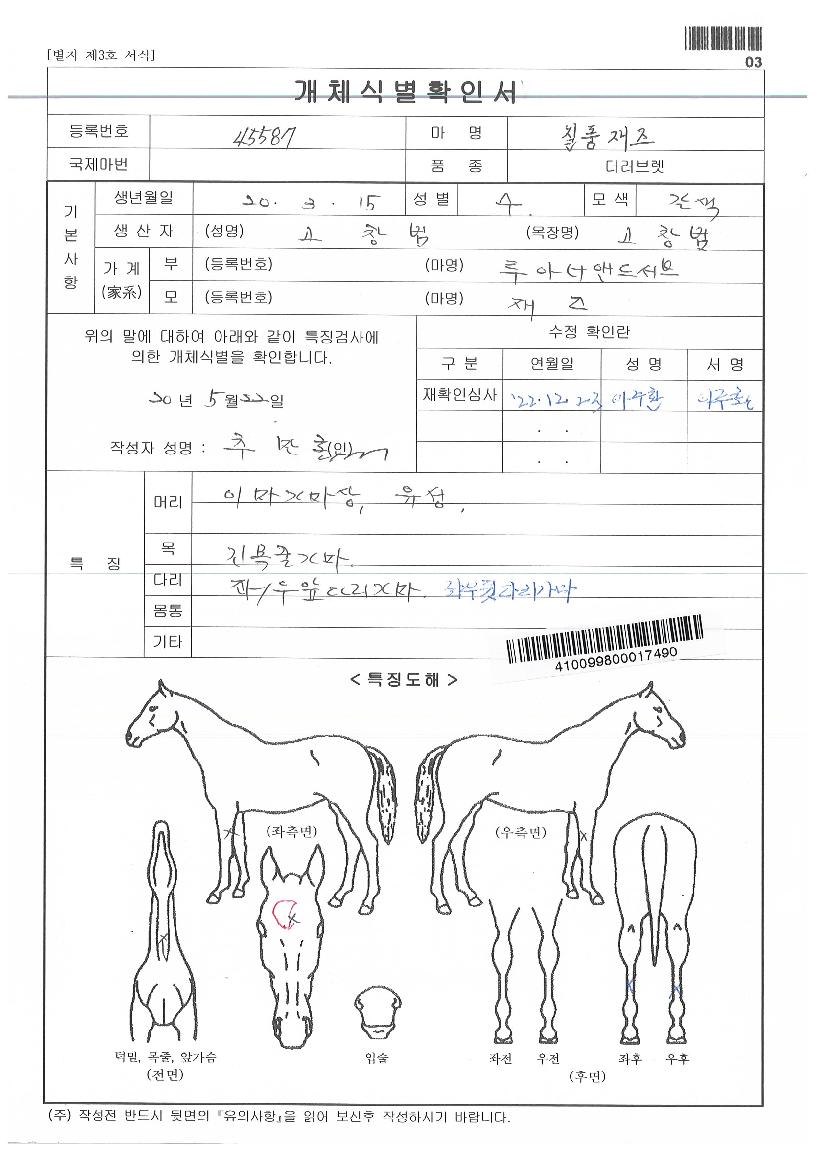 [별지 제3호 서식]
03
개체식별확인서
등록번호 45587 마 명 질풍재즈
국제마번 품 종 더러브렛
기본사항
생년월일 20. 3. 15 성별 수 모색 갈색
생 산 자 (성명) 고 창 범 (목장명) 고 창 범
가 계 (家系) 부 (등록번호) (마명)
모 (등록번호) (마명) 재 즈
위의 말에 대하여 아래와 같이 특징검사에
의한 개체식별을 확인합니다.
20년 5월 22일
작성자 성명 : (인)
수정 확인란
구 분 연월일 성 명 서 명
재확인심사 '22.12.23
. .
. .
특 징
머리 이마X마상, 유성,
목 긴목줄X마.
다리 좌/우앞다리X마.
몸통
기타
410099800017490
< 특징도해 >
(좌측면) (우측면)
턱밑, 목줄, 앞가슴 입술 좌전 우전 좌후 우후
(전면) (후면)
(주) 작성전 반드시 뒷면의 『유의사항』을 읽어 보신후 작성하시기 바랍니다.